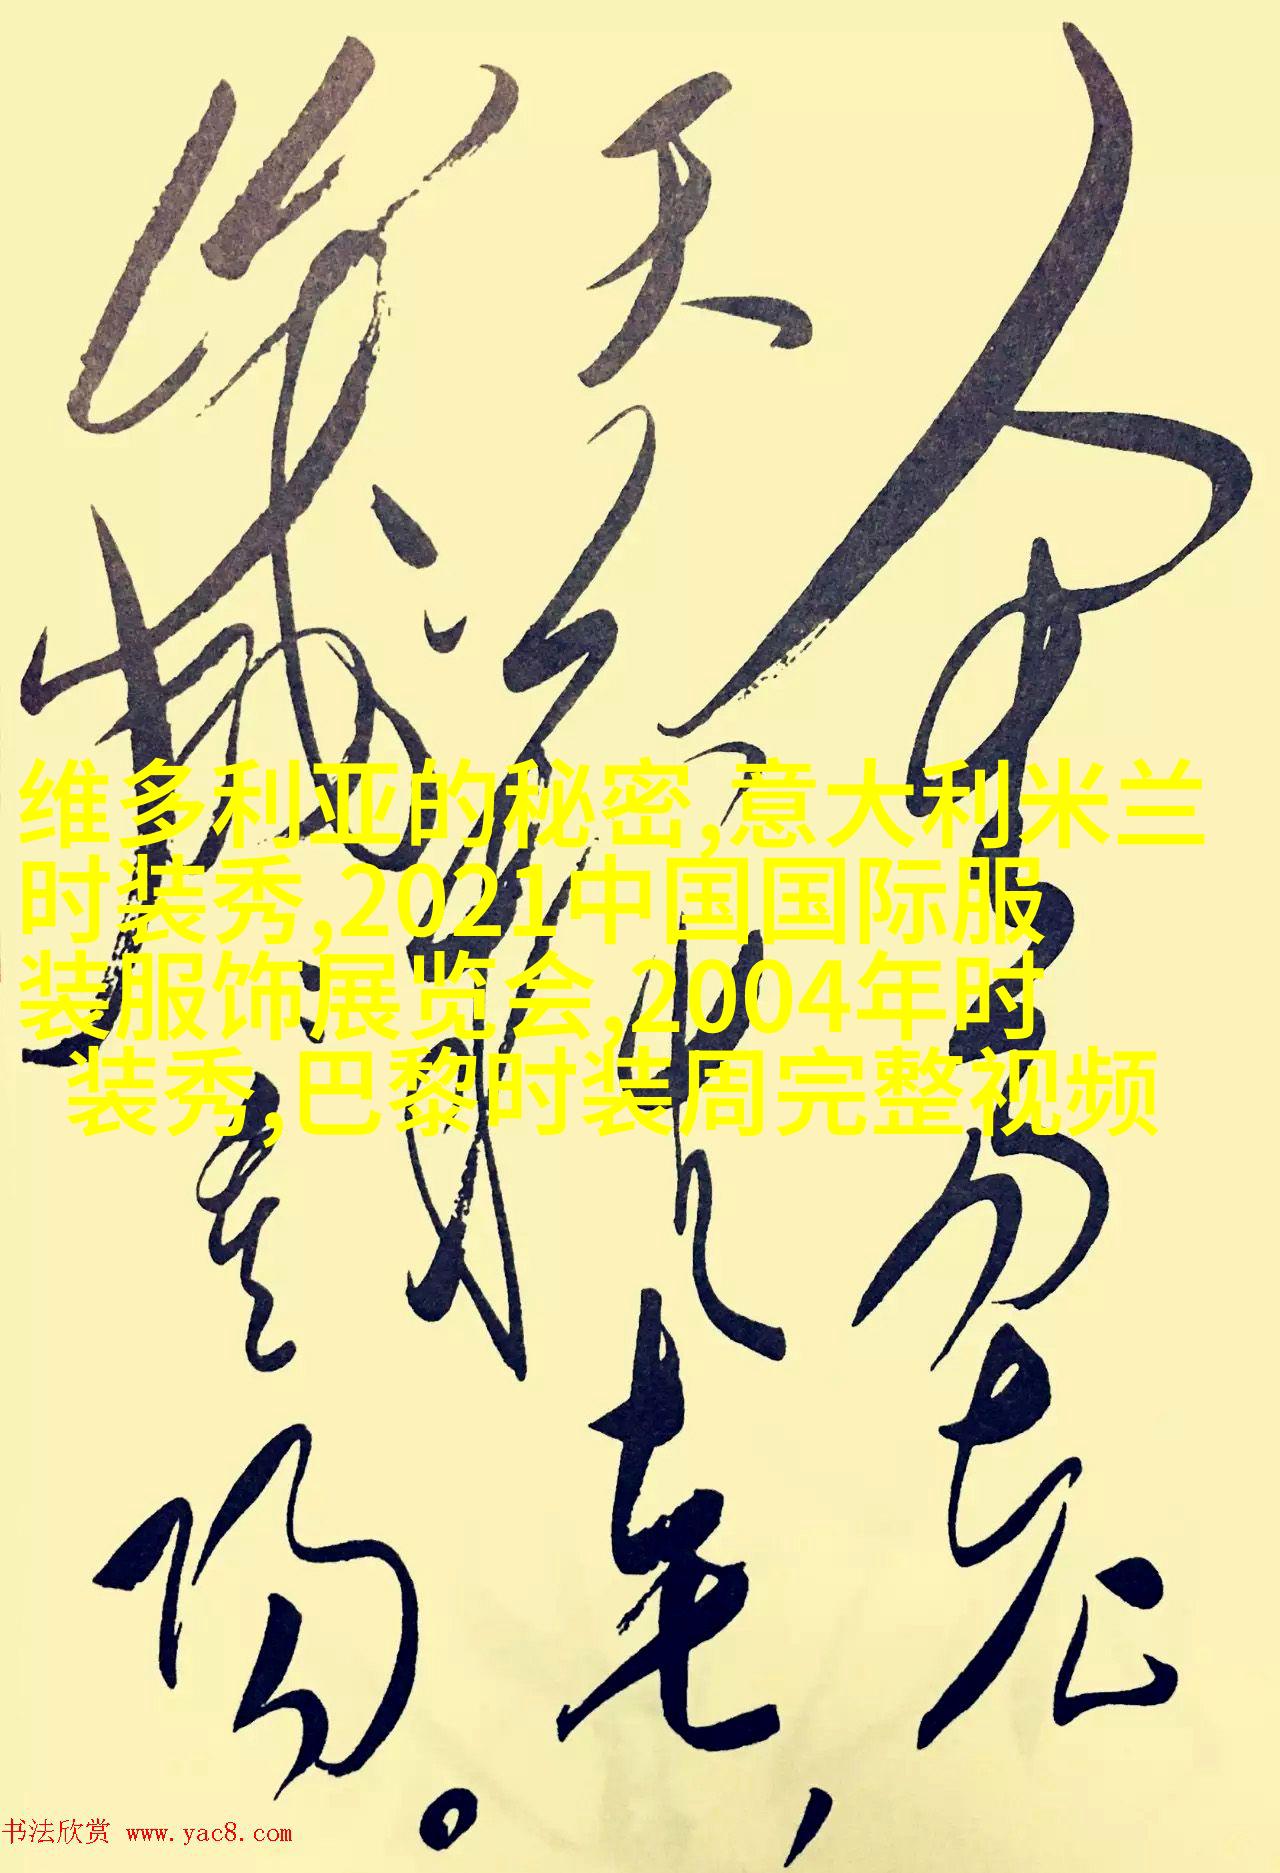 人生易老
天难老，
岁岁重阳。
维多利亚的秘密,意大利米兰
时装秀,2021中国国际服
装服饰展览会,2004年时
装秀,巴黎时装周完整视频
书法欣赏 www.yac8.com